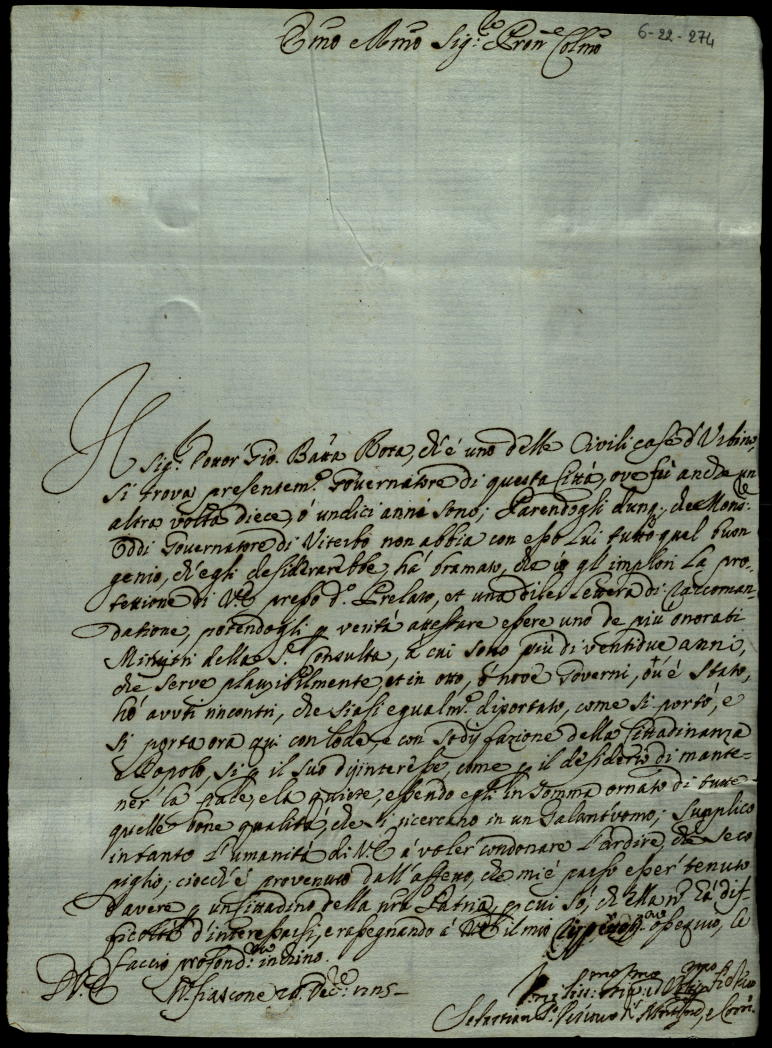 Emo e Rmo Sig.re Pron Colmo
6-22-274
Il Sig.r Dottor Gio. Batta Bota, ch'è uno delle Civili case d'Urbino,
si trova presentem.te Governatore di questa Città, ove fù anche un
altra volta diece, ò undici anni sono; Parendogli dunq; che Mons.re
Oddi Governatore di Viterbo non abbia con esso lui tutto quel buon
genio, ch'egli desiderarebbe, hà bramato, che io gl'implori la pro-
tezzione di V.E. presso d.o Prelato, et una di lei lettera di raccoman-
datione, potendogli p verità attestare essere uno de più onorati
Ministri della S. Consulta, a cui sono più di ventidue anni,
che serve plausibilmente, et in otto, ò nove Governi, ov'è stato,
hò avuti rincontri, che siasi egualm.te diportato, come si portò, e
si porta ora qui con lode, e con sodisfazione della Cittadinanza
e Popolo, sì p il suo disinteresse, come p il desiderio di mante-
ner la pace, e la quiete, essendo egli in somma ornato di tutte
quelle bone qualità, che si ricercano in un Galantuomo; Supplico
intanto l'umanità di V.E. à voler condonare l'ardire, che seco
piglio; ciocch'è provenuto dall'affetto, che mi è parso esser tenuto
d'avere p un Cittadino della nra Patria, p cui sò, ch'Ella n' hà dif-
ficoltà d'interessarsi, e rassegnando à V.E. il mio ossequio, le
faccio profond.mo inchino.
D V.E.
M.fiascone Dec.re 1715
Sebastian Vescovo di Montef. e Corn.